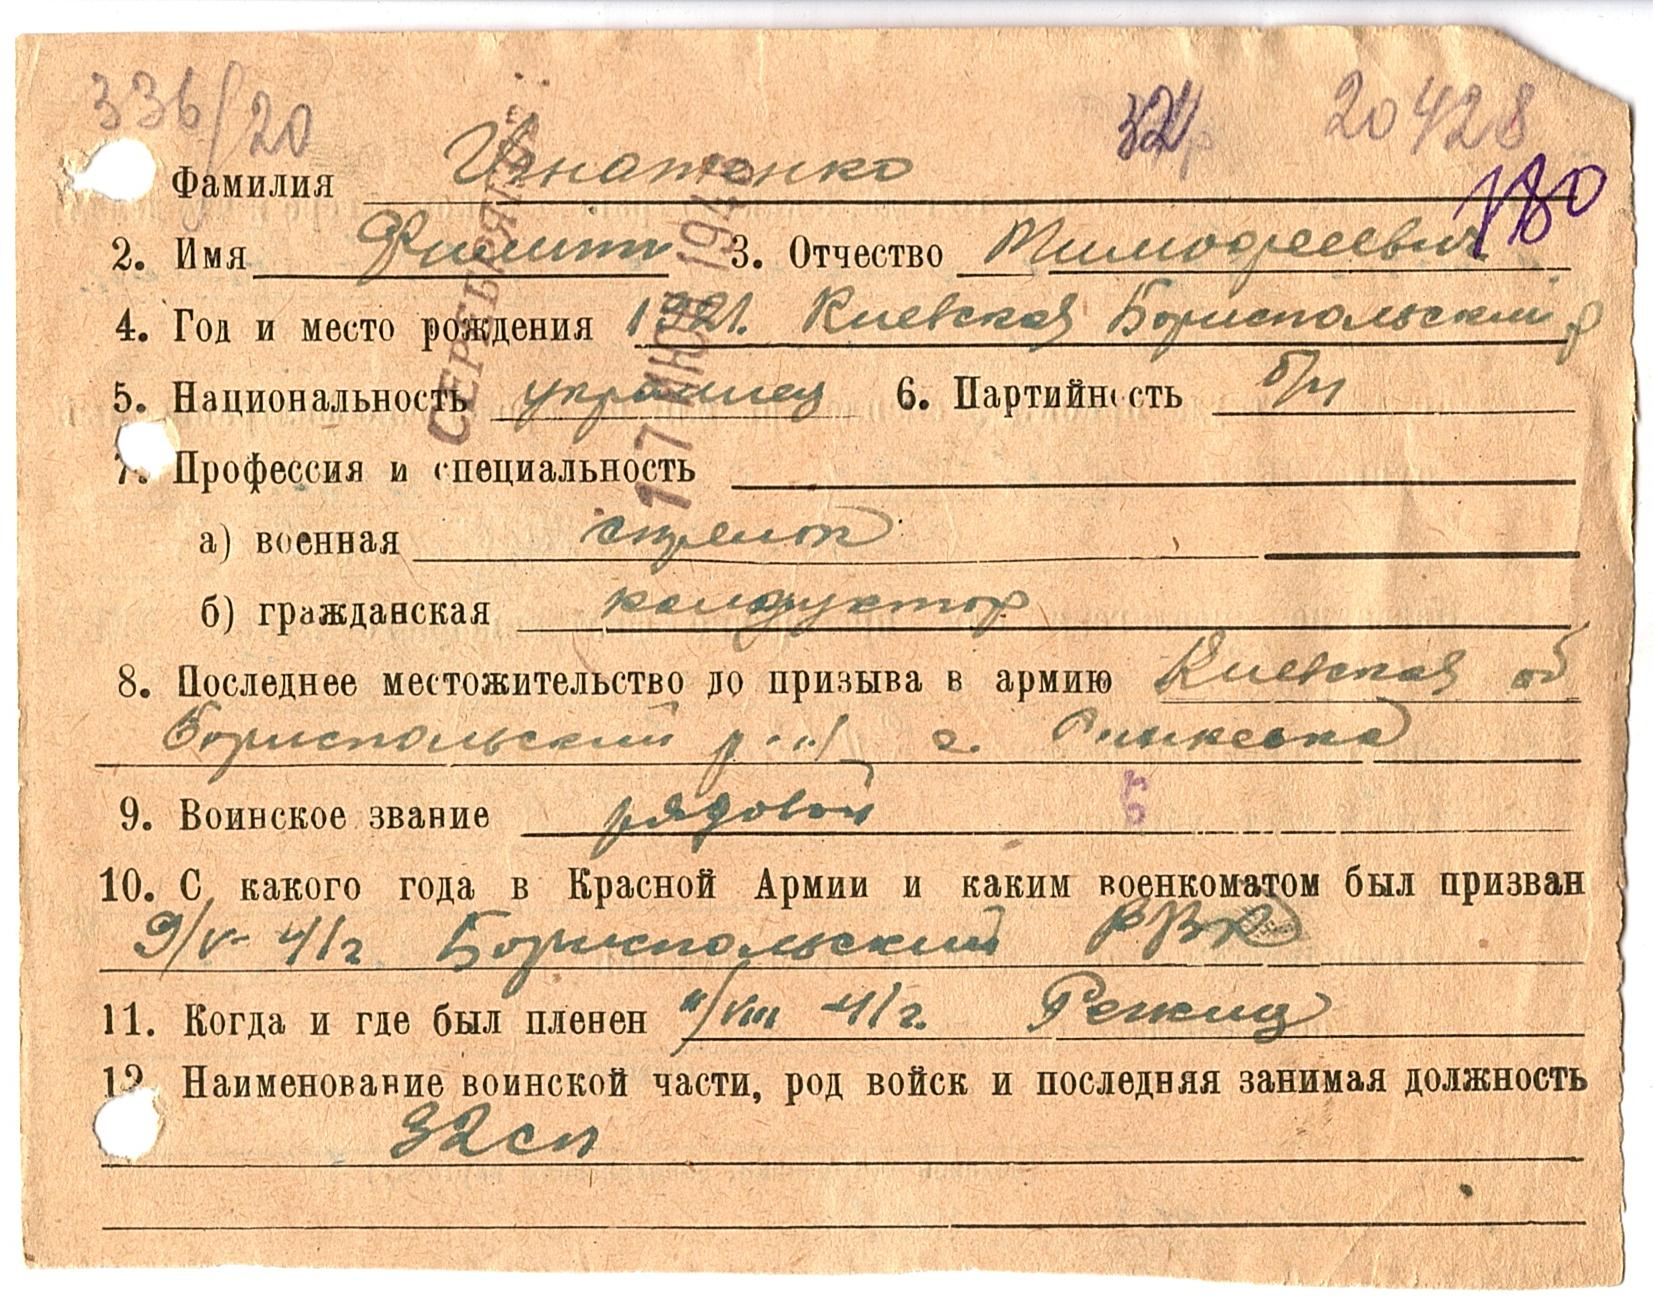 336/20 20428
Фамилия Игнатенко
180
2. Имя Филипп 3. Отчество Тимофеевич
4. Год и место рождения 1921. Киевская Бориспольский р
5. Национальность украинец 6. Партийность б/п
7. Профессия и специальность
а) военная стрелок
б) гражданская кондуктор
8. Последнее местожительство до призыва в армию Киевская об
Бориспольский р-н г.
9. Воинское звание рядовой
10. С какого года в Красной Армии и каким военкоматом был призван
9/V- 41г Бориспольский РВК
11. Когда и где был пленен 11/VIII 41г.
12. Наименование воинской части, род войск и последняя занимая должность
32сп
17 ИЮН 194